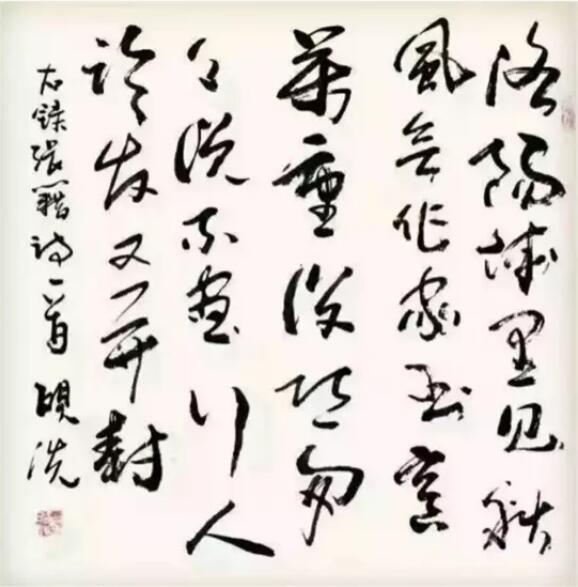 洛陽城里見秋
風欲作家書意
萬重復恐匆
々說不盡行人
臨發又開封
右錄張籍詩一首 硯洗